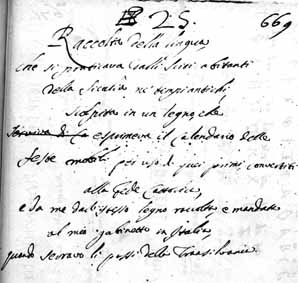 25. 669
Raccolta della lingua
che si praticava dalli Siculi abitanti
della Siculia ne' tempi antichi
scolpita in un legno, che
esprimeva il Calendario delle
feste mobili per uso di quei primi convertiti
alla fede Cattolica,
e da me dall'istesso legno raccolta e mandata
al mio gabinetto in Italia,
quando serravo li passi della Transilvania